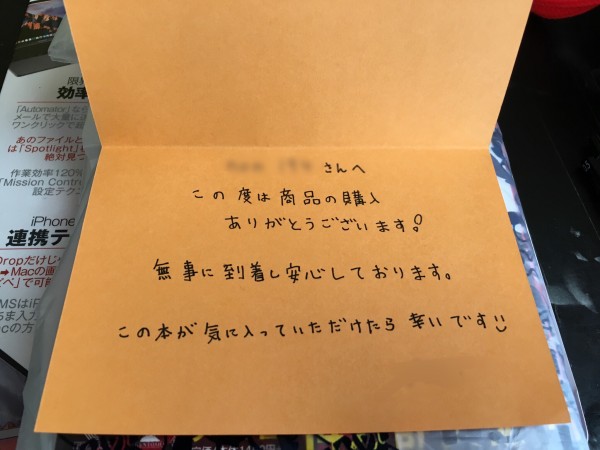 さんへ
この度は商品の購入
ありがとうございます!
無事に到着し安心しております。
この本が気に入っていただけたら幸いです
効率
「Automator」な
メールで大量に
ワンクリックで
あのファイルと
は「Spotlight」
絶対見つ
作業効率120%
「Mission Contr
設定テクニ
iPhone
連携テ
Dropだけじゃ
➡Macの画
ピペ」で可能
MSはiP
ちま入力
acの方